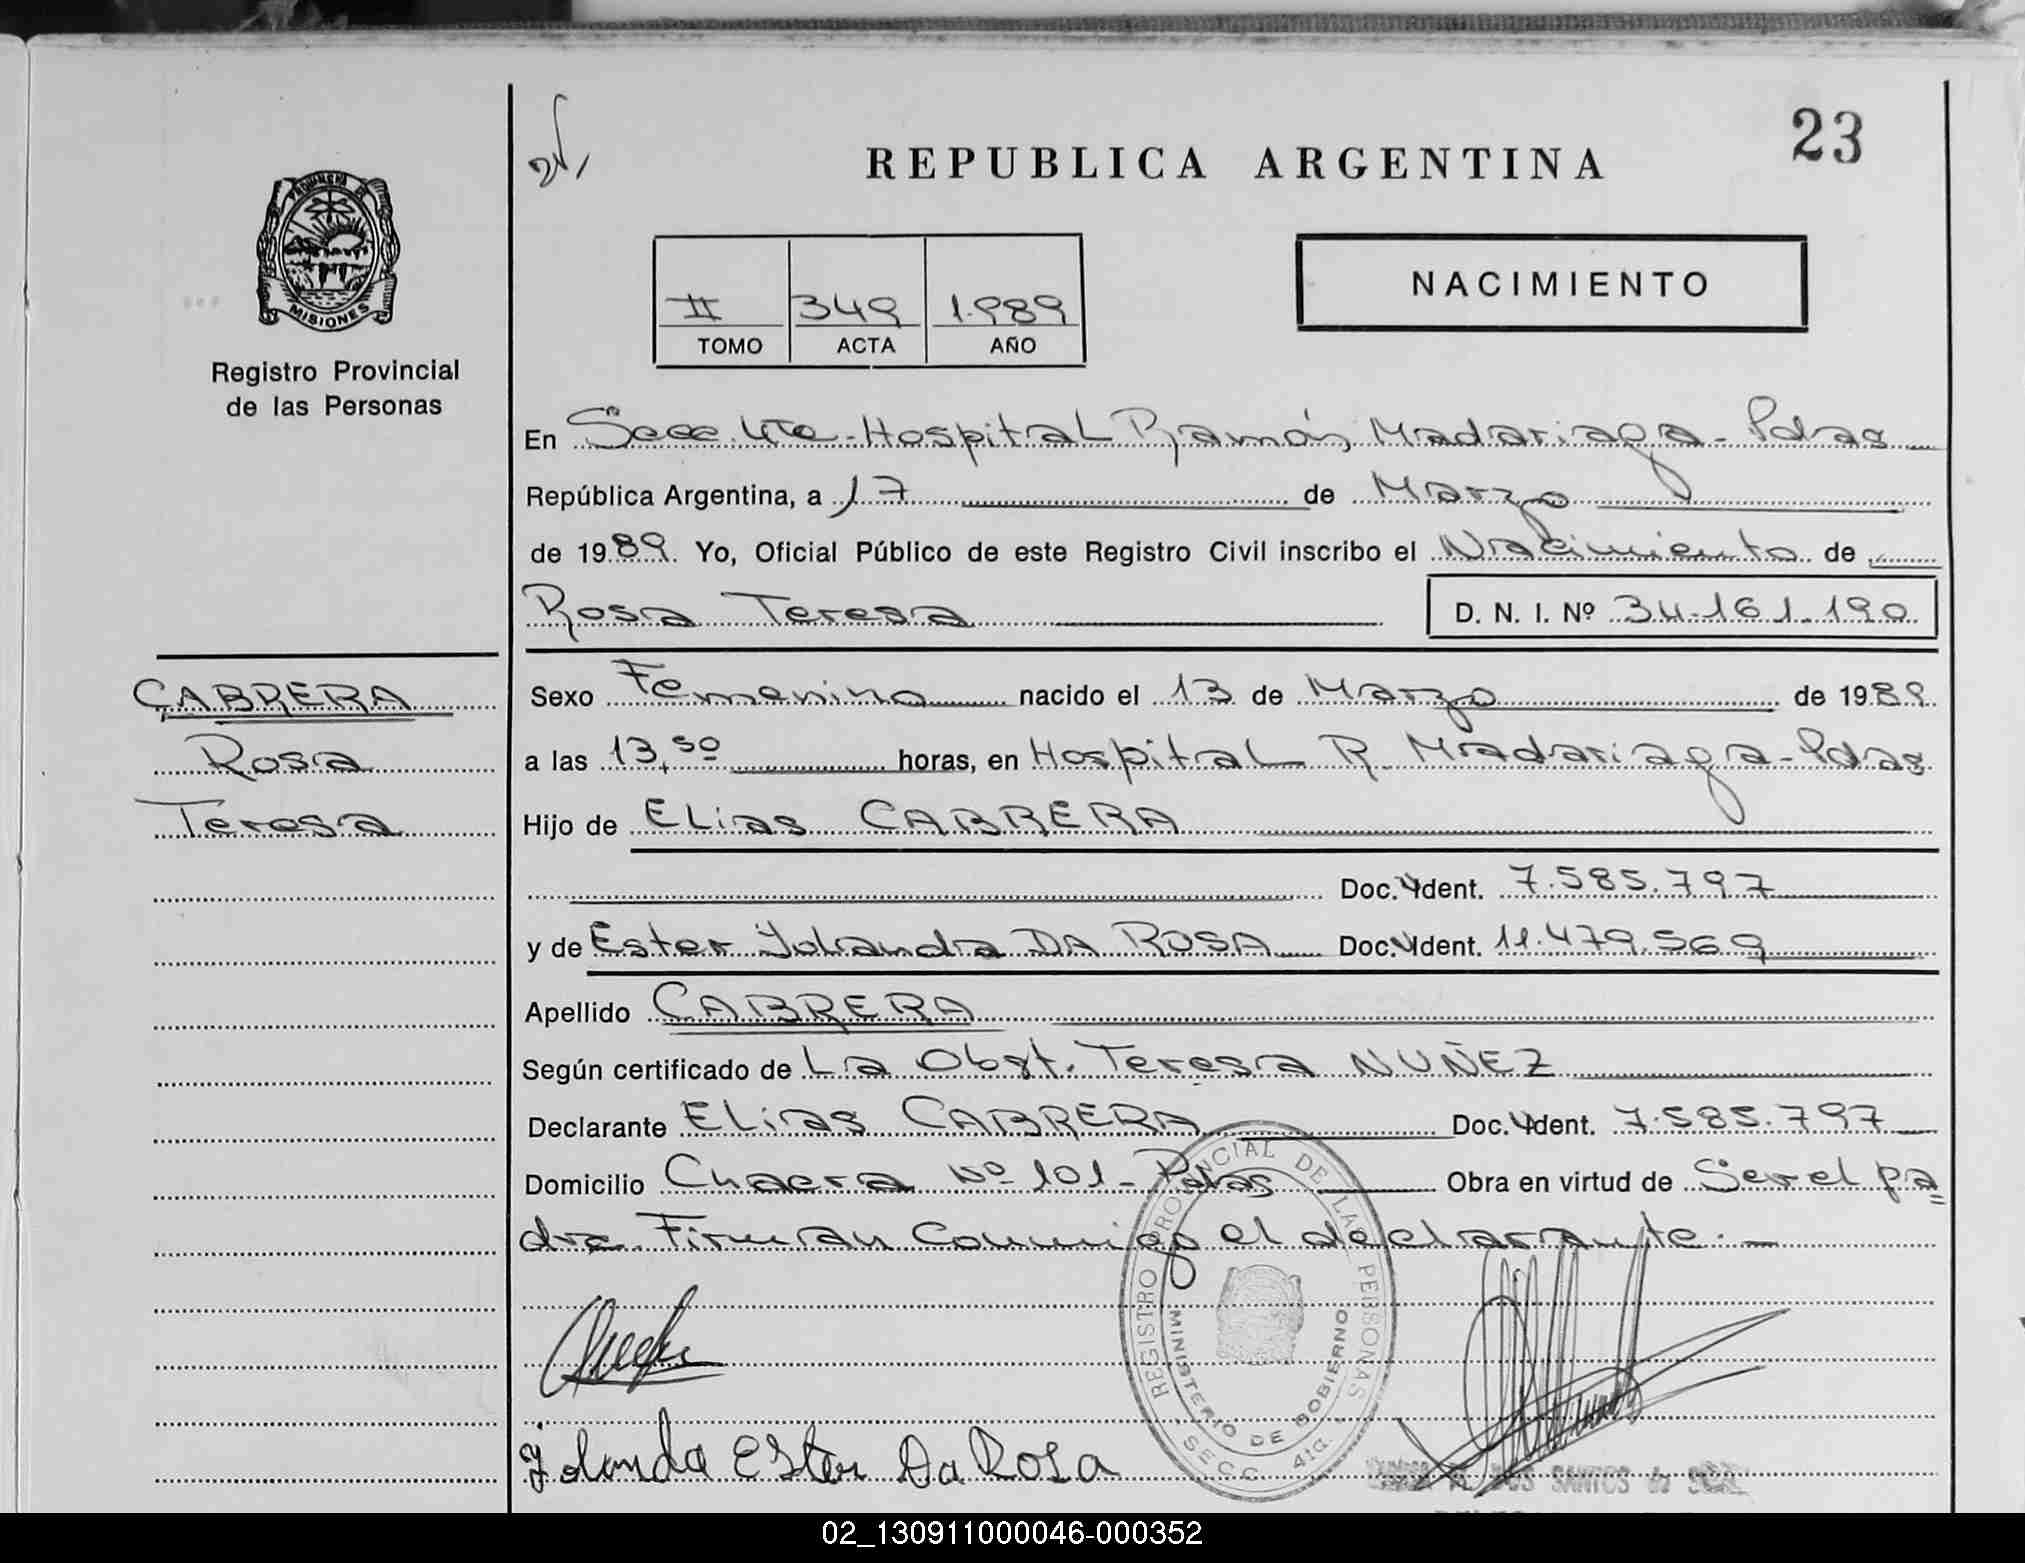 23
REPUBLICA ARGENTINA
PROVINCIA DE
MISIONES
Registro Provincial
de las Personas
II 349 1.989
TOMO ACTA AÑO
NACIMIENTO
En Secc. 4ta - Hospital Ramón Madariaga - Pdas
República Argentina, a 17 de Marzo
de 1989. Yo, Oficial Público de este Registro Civil inscribo el Nacimiento de
Rosa Teresa D. N. I. Nº 34.161.190
CABRERA
Rosa
Teresa
Sexo Femenino nacido el 13 de Marzo de 1989
a las 13,50 horas, en Hospital R. Madariaga - Pdas
Hijo de ELias CABRERA
Doc. Ident. 7.585.797
y de Ester Yolanda DA ROSA Doc. Ident. 11.479.569
Apellido CABRERA
Según certificado de La Obst. Teresa NUÑEZ
Declarante ELias CABRERA Doc. Ident. 7.585.797
Domicilio Chacra Nº 101 - Pdas Obra en virtud de Ser el pa=
dre. Firman Conmigo el declarante. -
REGISTRO PROVINCIAL DE LAS PERSONAS
MINISTERIO DE GOBIERNO
SECC. 4ta.
Yolanda Ester Da Rosa
DOS SANTOS de
02_130911000046-000352